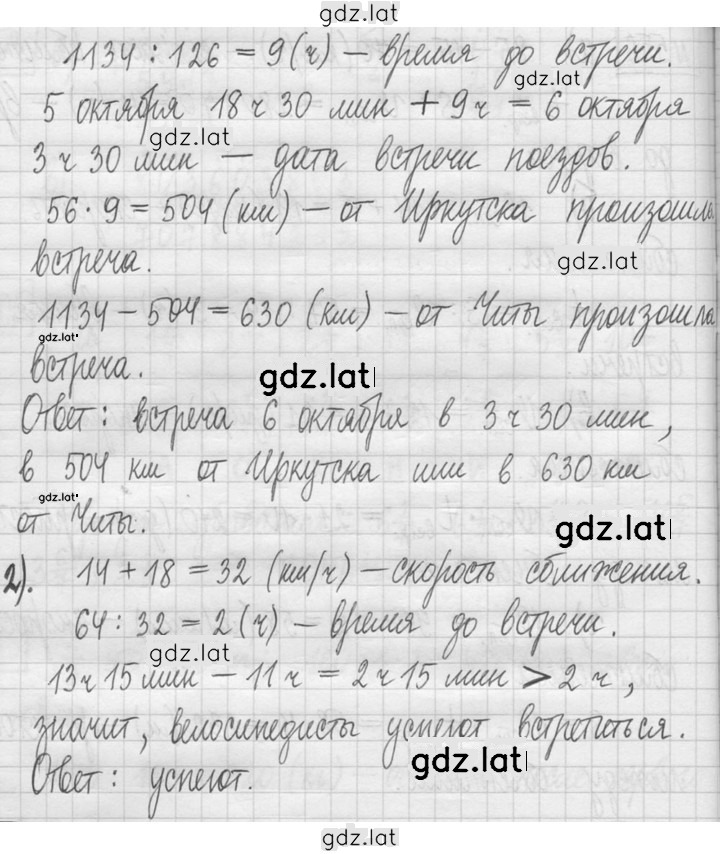 gdz.lat
1134 : 126 = 9 (ч) – время до встречи.
gdz.lat
5 октября 18 ч 30 мин + 9 ч = 6 октября
gdz.lat
3 ч 30 мин — дата встречи поездов.
56 · 9 = 504 (км) – от Иркутска произошла
встреча.
gdz.lat
1134 – 504 = 630 (км) – от Читы произошла
gdz.lat
встреча.
gdz.lat
Ответ: встреча 6 октября в 3 ч 30 мин,
в 504 км от Иркутска или в 630 км
gdz.lat
от Читы.
gdz.lat
2). 14 + 18 = 32 (км/ч) – скорость сближения.
64 : 32 = 2 (ч) – время до встречи.
gdz.lat
13 ч 15 мин – 11 ч = 2 ч 15 мин > 2 ч,
значит, велосипедисты успеют встретиться.
gdz.lat
Ответ: успеют.
gdz.lat